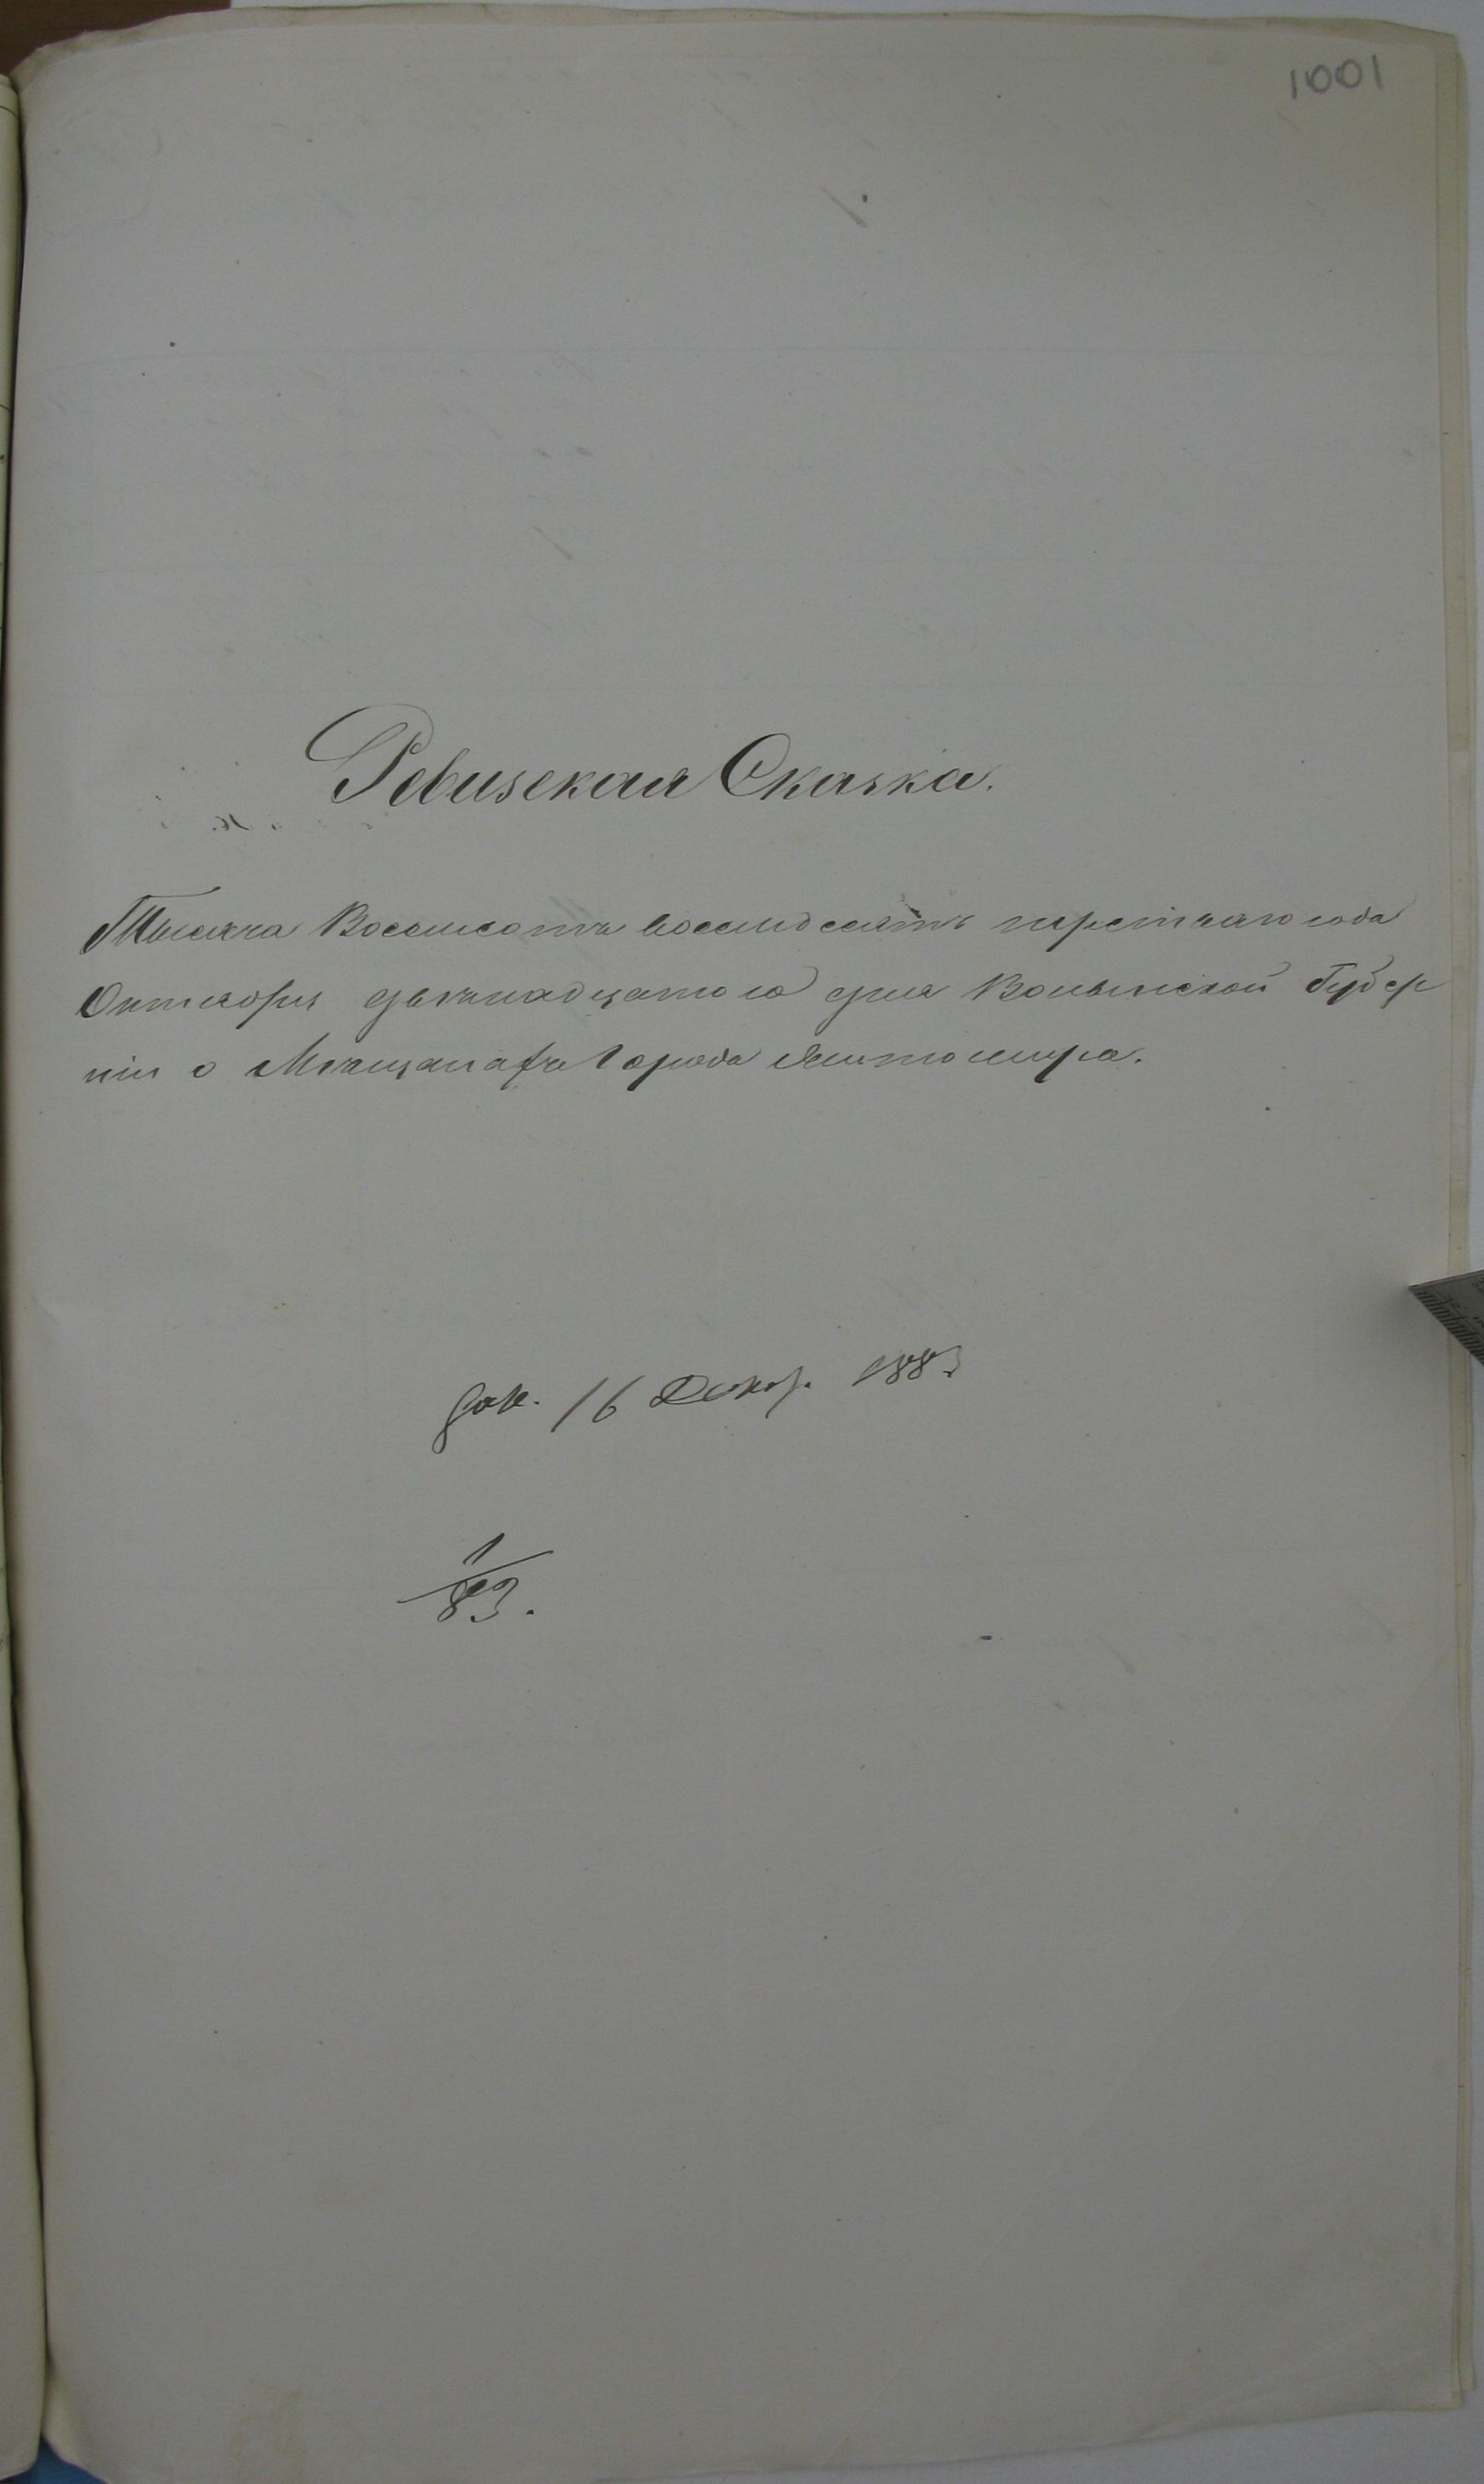 1001
Ревизская Сказка.
Тысяча Восемсотъ восемдесятъ третьяго года
Октября двенадцатого дня Волынской Губер
ніи о Мѣщанахъ Города Житомира.
16 Декаб. 1883
1/83.